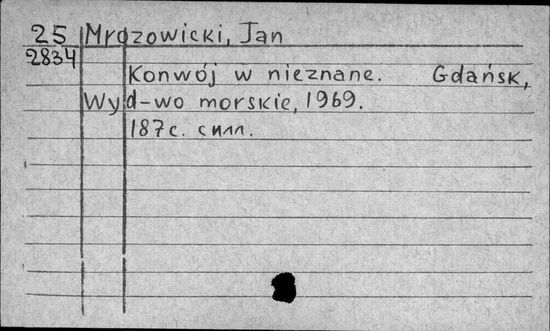 25 Mrozowicki, Jan
2834
Konwój w nieznane. Gdańsk,
Wyd-wo morskie, 1969.
187с. с илл.